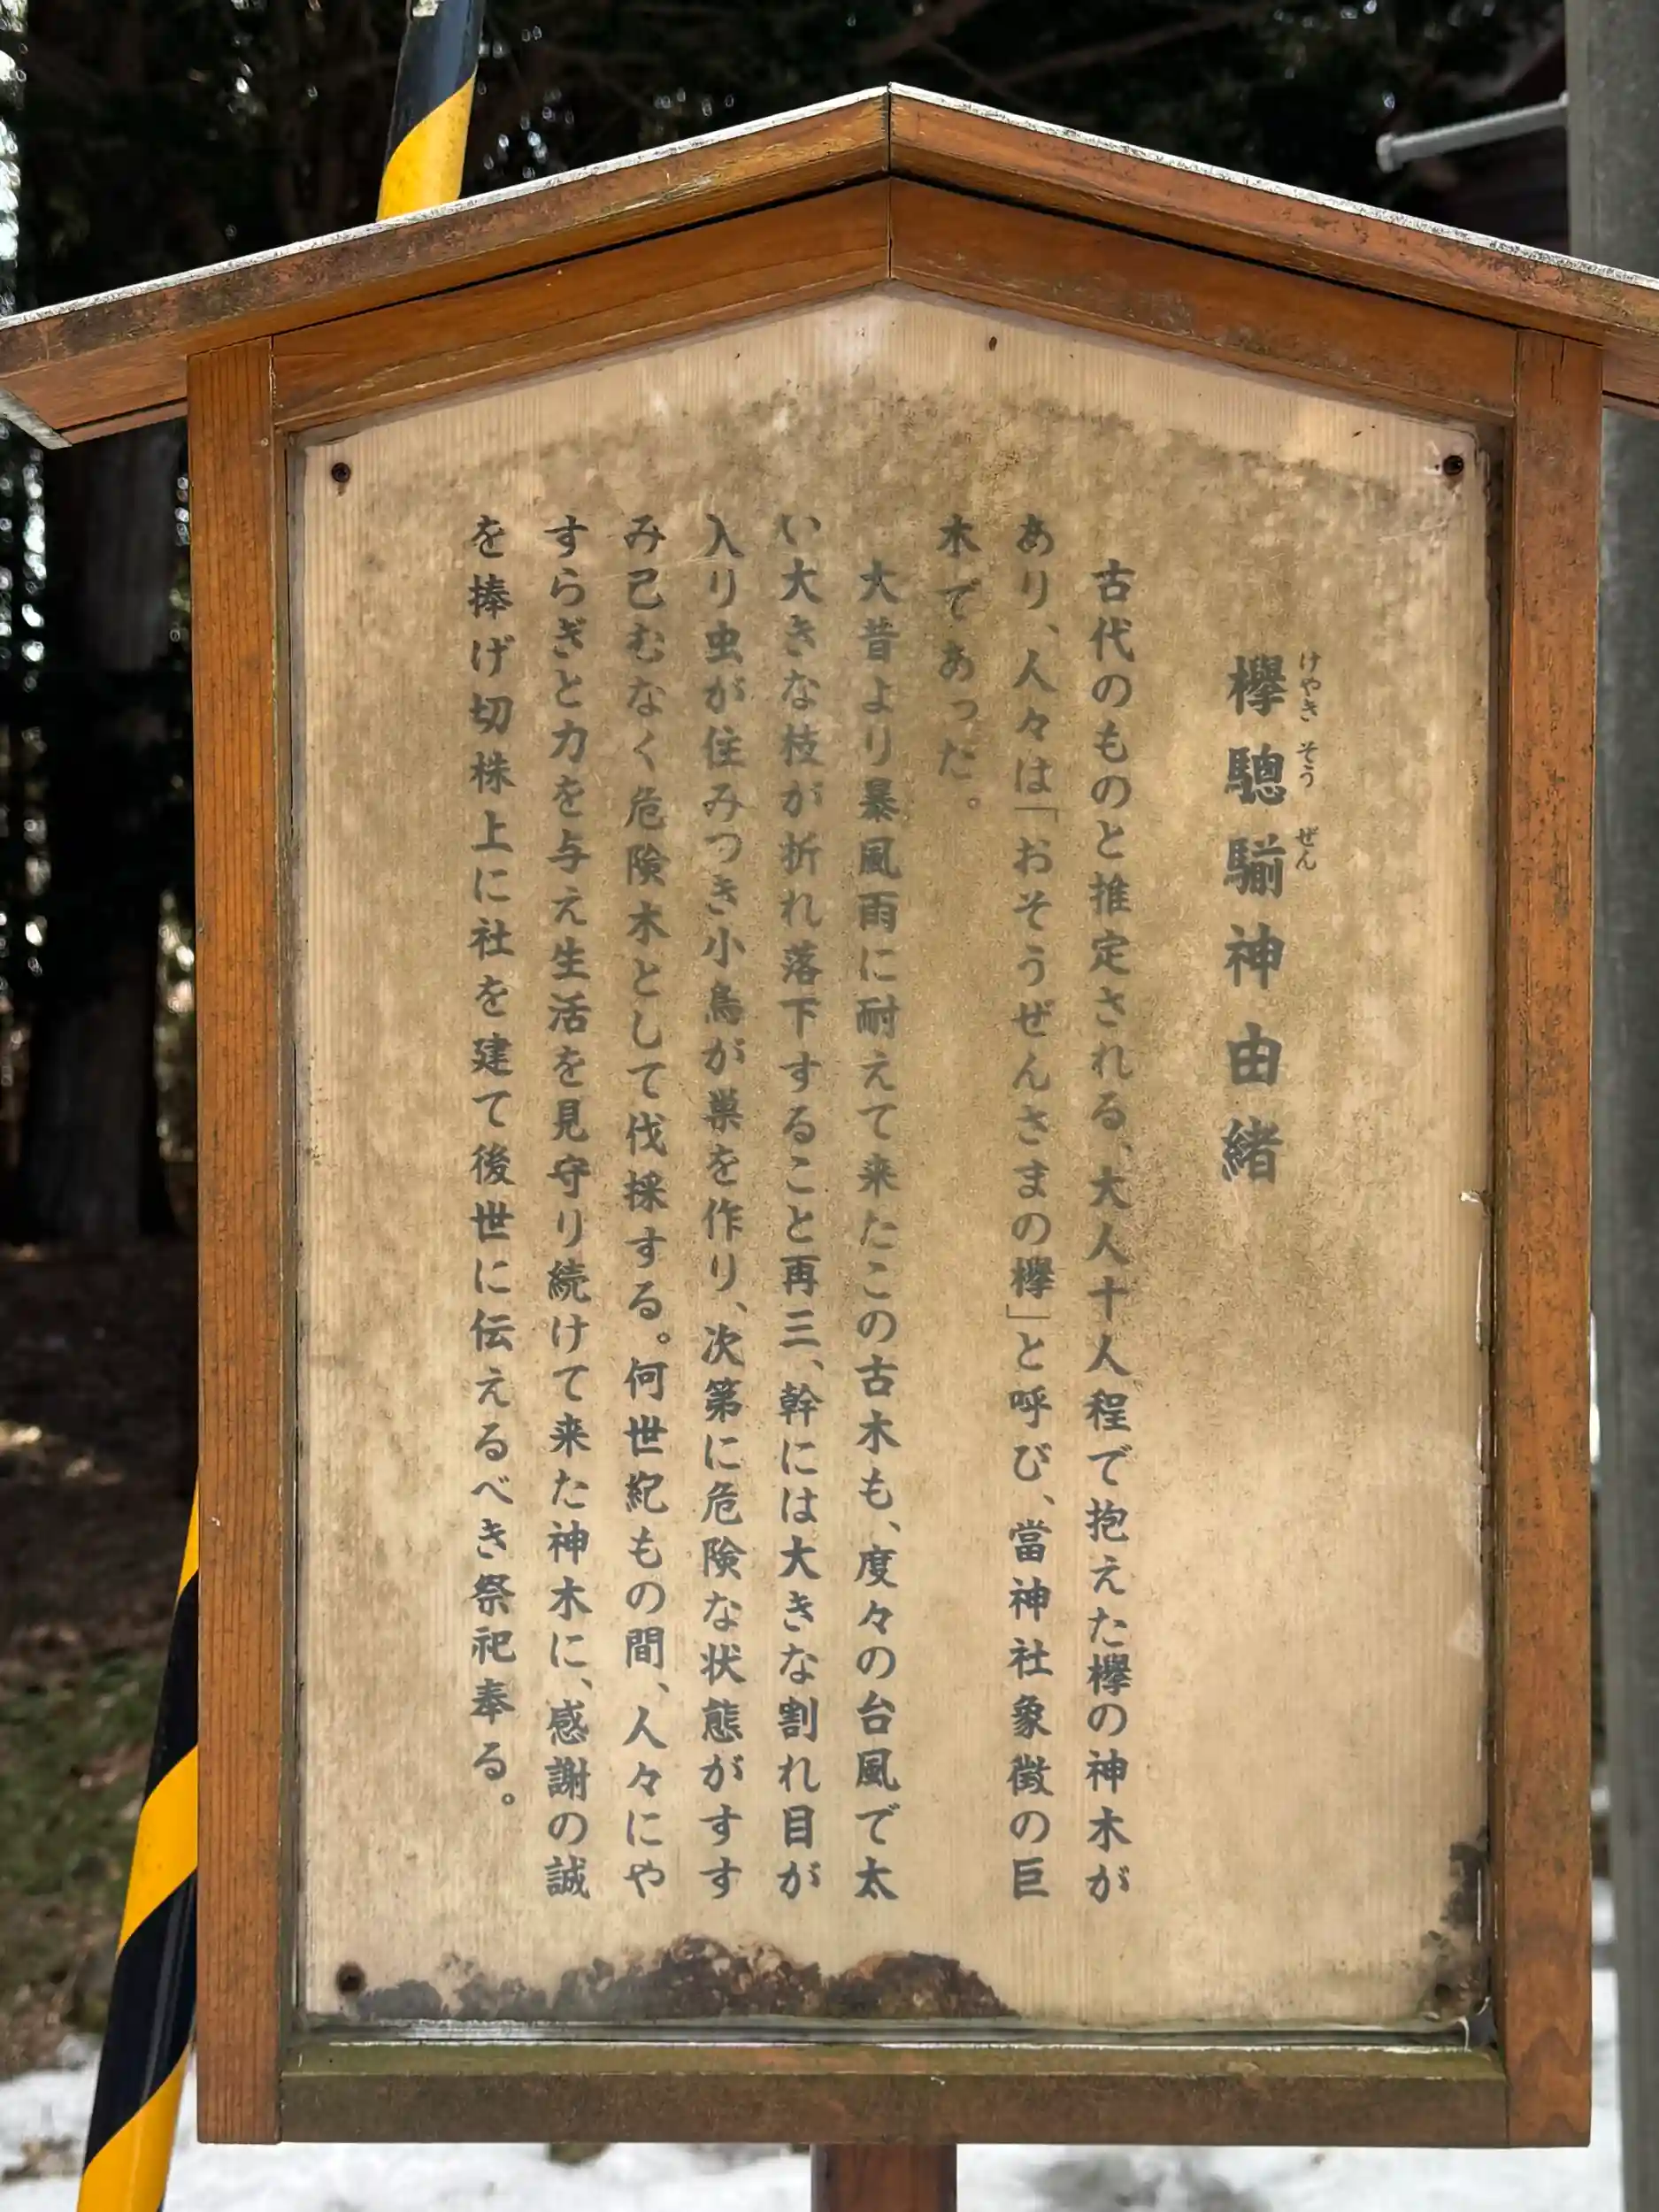 欅驄騚神由緒
けやき そう ぜん
古代のものと推定される、大人十人程で抱えた欅の神木が
あり、人々は「おそうぜんさまの欅」と呼び、當神社象徴の巨
木であった。
大昔より暴風雨に耐えて来たこの古木も、度々の台風で太
い大きな枝が折れ落下すること再三、幹には大きな割れ目が
入り虫が住みつき小鳥が巣を作り、次第に危険な状態がすす
み已むなく危険木として伐採する。何世紀もの間、人々にや
すらぎと力を与え生活を見守り続けて来た神木に、感謝の誠
を捧げ切株上に社を建て後世に伝えるべき祭祀奉る。